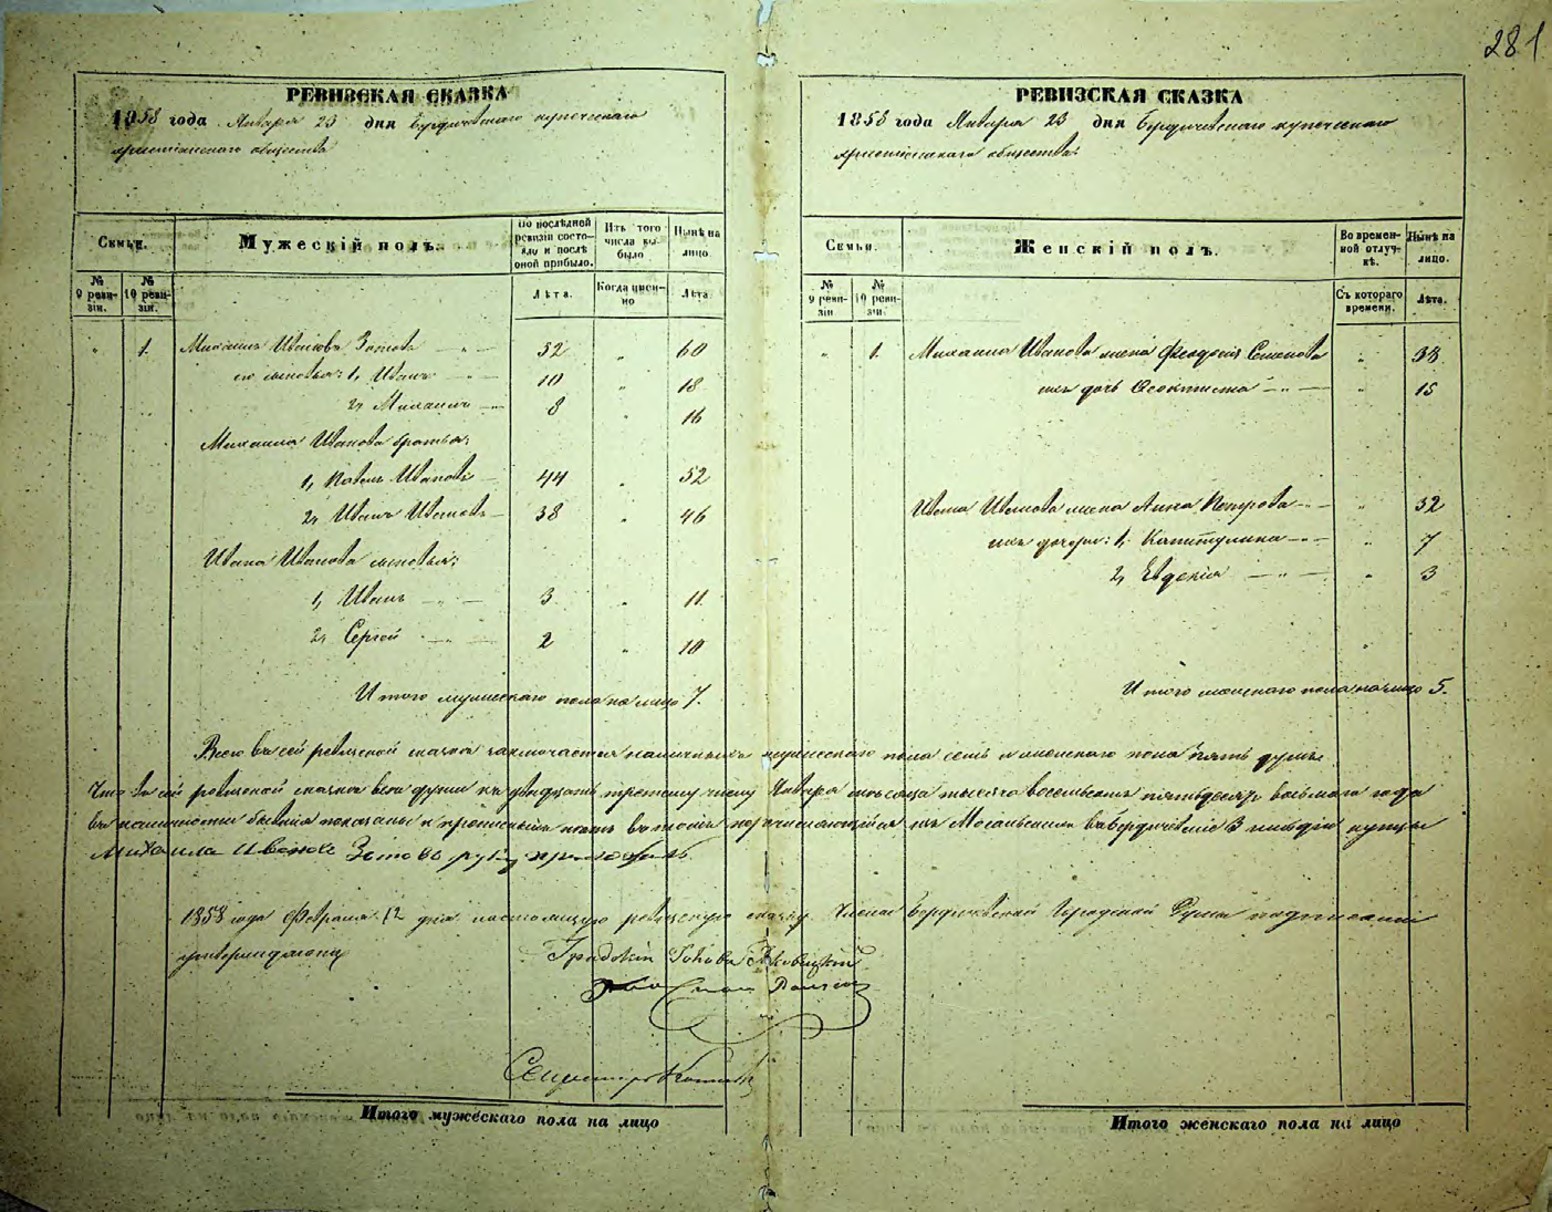 281
РЕВИЗСКАЯ СКАЗКА
1858 года Января 23 дня Бердичевскаго купеческаго
христіянскаго общества
Семьи.
Мужескій полъ.
По послѣдней ревизіи состояло и послѣ оной прибыло.
Изъ того числа выбыло
Нынѣ на лицо
№ 9 ревизіи.
№ 10 ревизіи.
Лѣта.
Когда именно
Лѣта
1. Михаилъ Ивановъ Зотовъ 52 60
его сыновья: 1, Иванъ 10 18
2, Михаилъ 8 16
Михаила Иванова братья:
1, Павелъ Ивановъ 44 52
2, Иванъ Ивановъ 38 46
Ивана Иванова сыновья:
1, Иванъ 3 11
2, Сергей 2 10
Итого мужескаго пола на лицо 7.
РЕВИЗСКАЯ СКАЗКА
1858 года Января 23 дня Бердичевскаго купеческаго
христіянскаго общества
Семьи.
Женскій полъ.
Во временной отлучкѣ.
Нынѣ на лицо.
№ 9 ревизіи
№ 10 ревизіи.
Съ котораго времени.
Лѣта.
1. Михаила Иванова жена Феодосія Семенова 38
ихъ дочь Феоктиста 15
Ивана Иванова жена Анна Петрова 32
ихъ дочери: 1, Капитулина 7
2, Евдокія 3
Итого женскаго пола на лицо 5.
Всего въ сей ревизской сказке заключается наличныхъ мужескаго пола семь и женскаго пола пять душъ.
Что въ сей ревизской сказке все души къ двадцать третьему числу Января месяца тысяча восемьсотъ пятьдесятъ восьмаго года
въ наличности показаны и Бердичевскіе 3 гильдіи купцы
Михаила Иванова Зотовъ руку приложилъ
1858 года Февраля 12 дня настоящую ревизскую сказку Члены Бердичевской Городской Думы подписомъ
утверждаютъ
Градскій Голова
Секретарь
Итого мужескаго пола на лицо
Итого женскаго пола на лицо